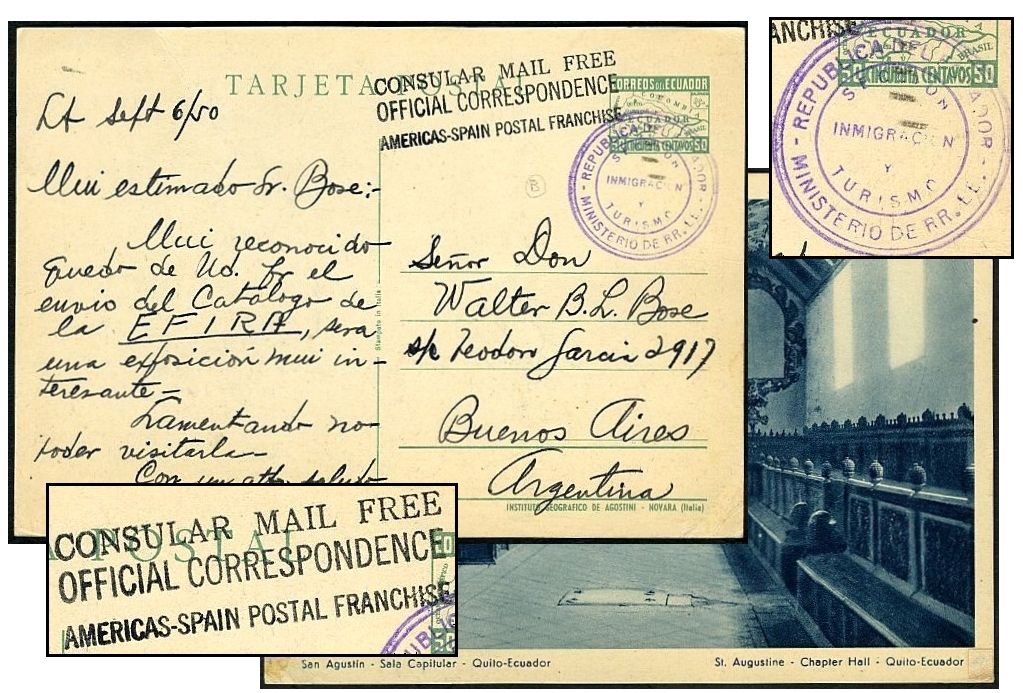 TARJETA POSTAL
CONSULAR MAIL FREE
OFFICIAL CORRESPONDENCE
AMERICAS-SPAIN POSTAL FRANCHISE
CORREOS DEL ECUADOR
COLOMB
ECUADOR
BRASIL
50 CINCUENTA CENTAVOS 50
REPUBLICA DEL ECUADOR
SECCION
INMIGRACION
Y
TURISMO
MINISTERIO DE RR. EE.
B
Sept 6/50
Mui estimado Sr. Bose:-
Mui reconocido
quedo de Ud. por el
envio del Catálogo de
la EFIRA, sera
una exposición mui in-
teresante-
Lamentando no
poder visitarla-
Con un atto. saludo
Stampato in Italia
Señor Don
Walter B. L. Bose
s/c Teodoro Garcia 2917
Buenos Aires
Argentina
INSTITUTO GEOGRAFICO DE AGOSTINI - NOVARA (Italia)
ANCHISE
ECUADOR
BRASIL
50 CINCUENTA CENTAVOS 50
REPUBLICA DEL ECUADOR
SECCION
INMIGRACION
Y
TURISMO
MINISTERIO DE RR. EE.
A POSTAL
CONSULAR MAIL FREE
OFFICIAL CORRESPONDENCE
AMERICAS-SPAIN POSTAL FRANCHISE
50
San Agustín - Sala Capitular - Quito-Ecuador
St. Augustine - Chapter Hall - Quito-Ecuador